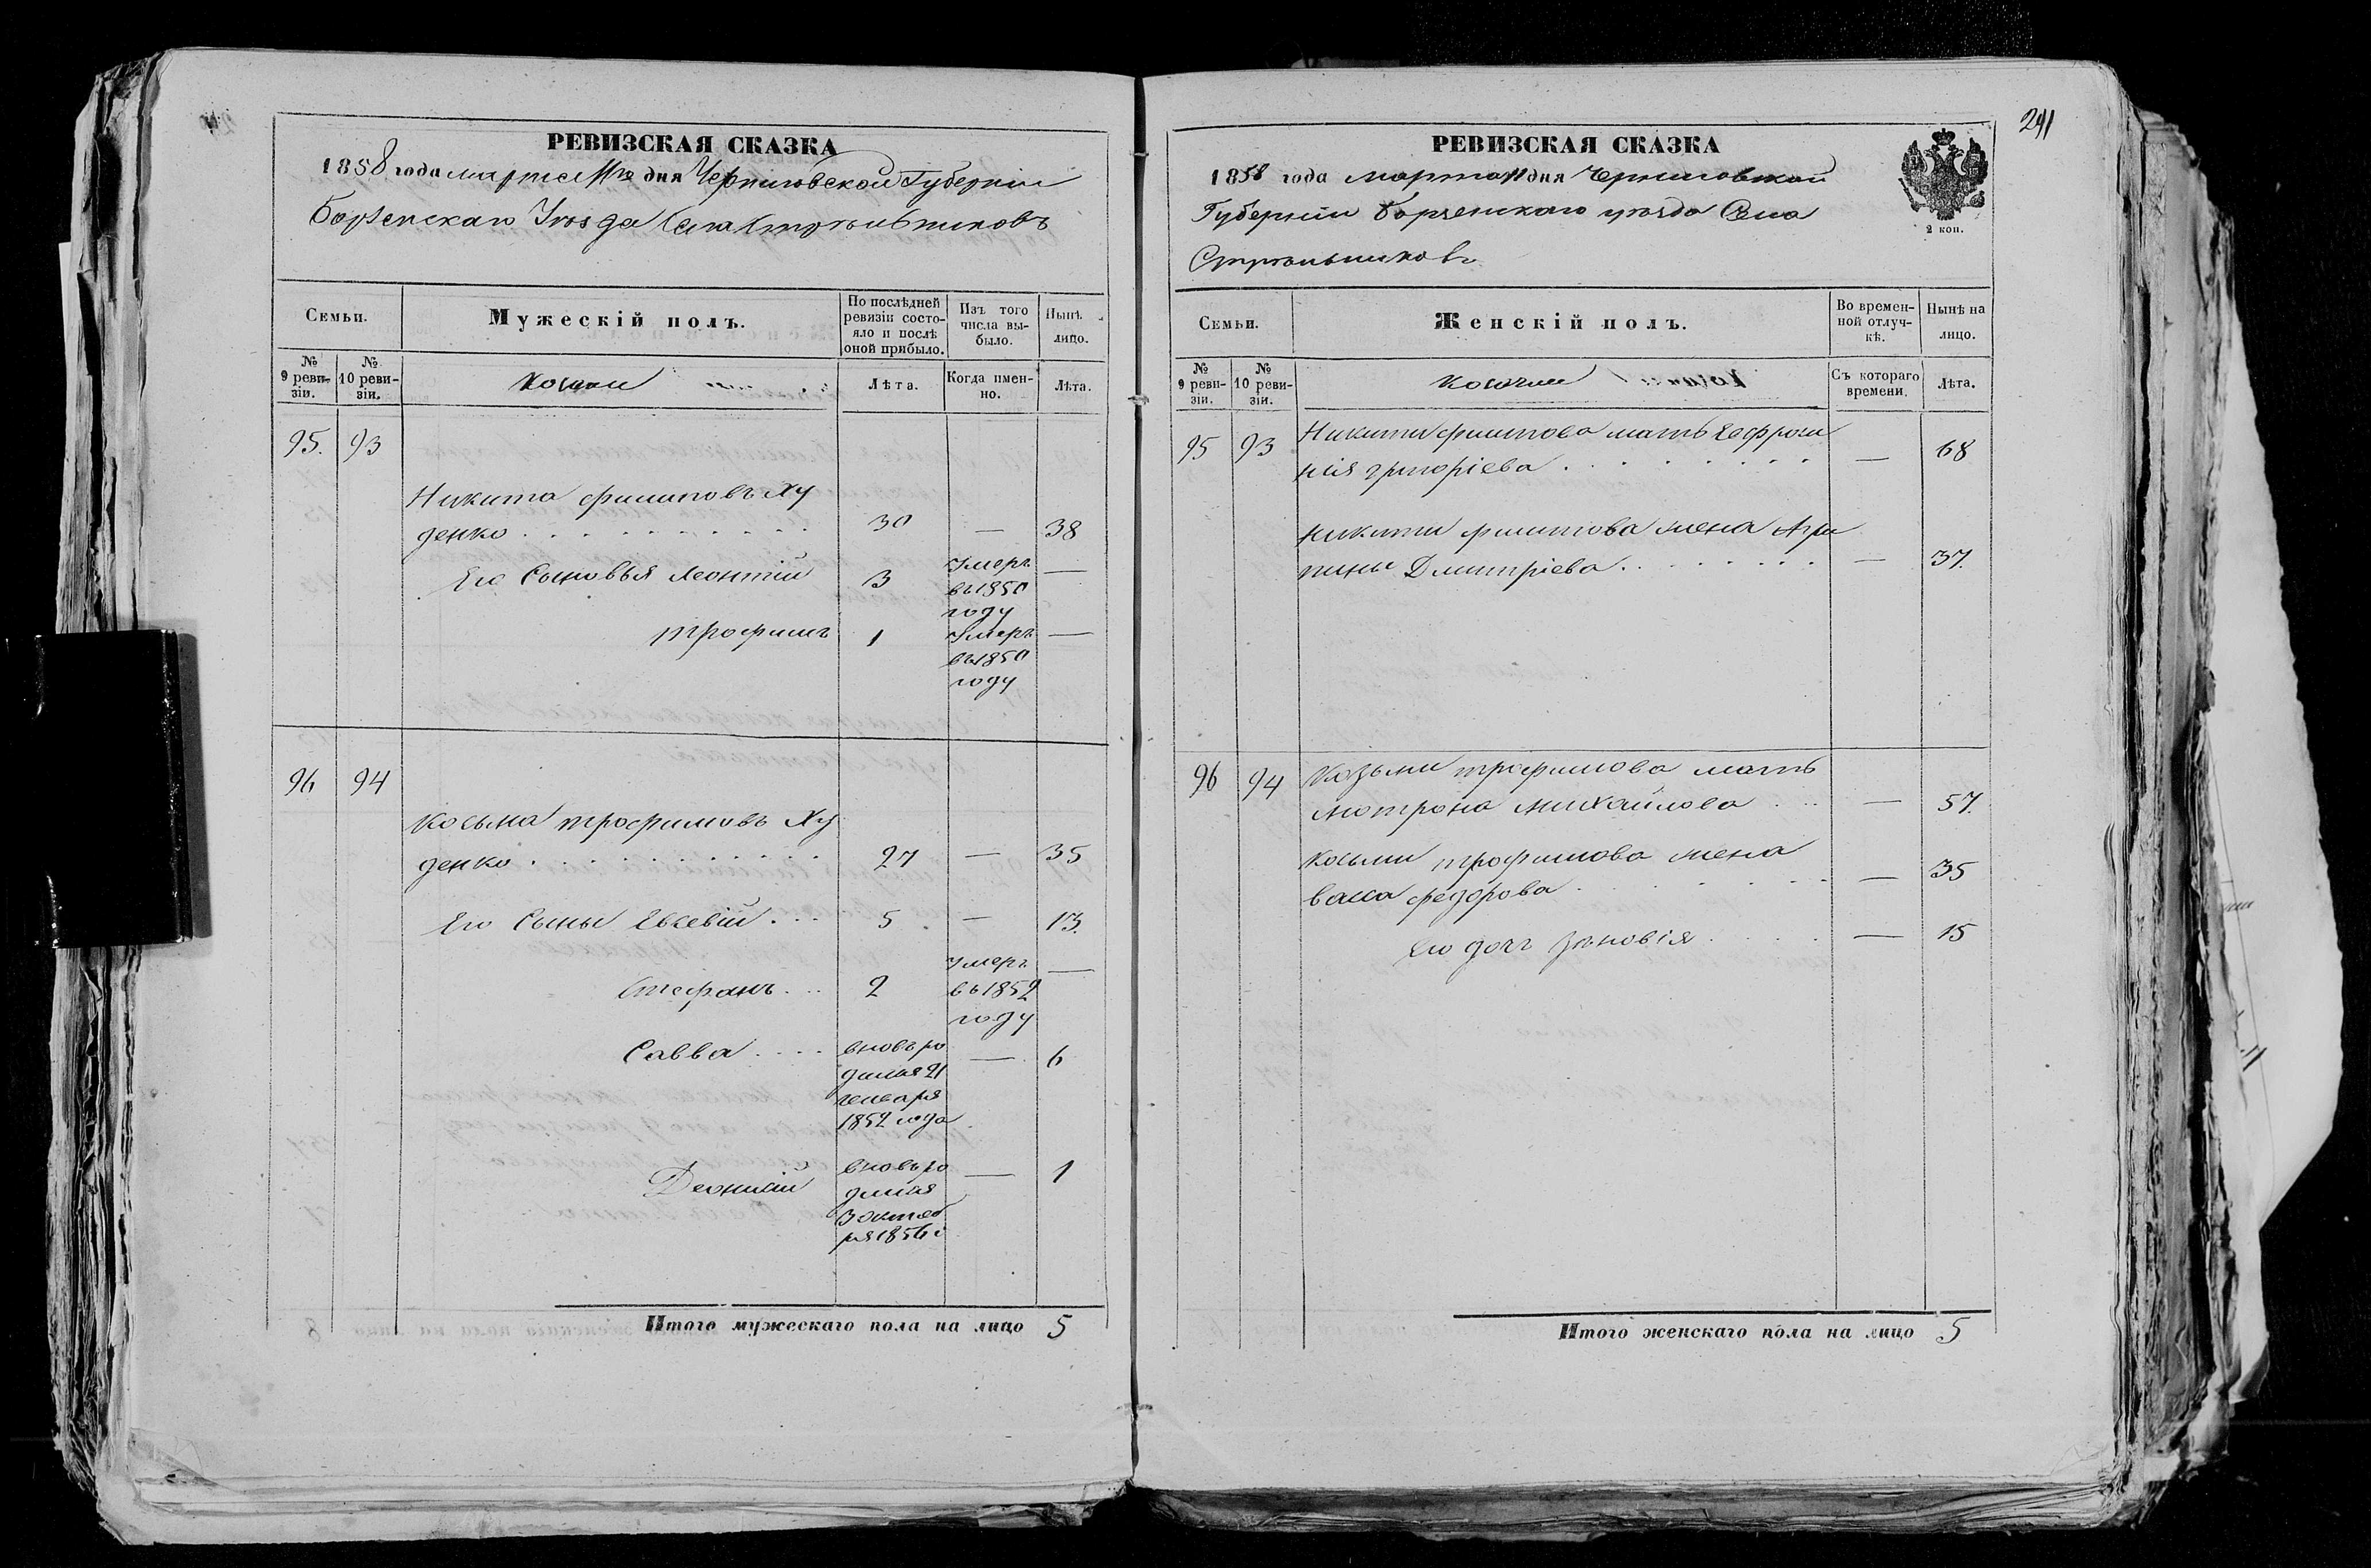 241
РЕВИЗСКАЯ СКАЗКА
1858 года марта 11го дня Черниговской Губерніи
Борзенскаго Уѣзда Села Стрѣльниковъ
Семьи.
Мужескій полъ.
По послѣдней ревизіи состояло и послѣ оной прибыло.
Изъ того числа выбыло.
Нынѣ лицо.
№ 9 ревизіи.
№ 10 ревизіи.
Козаки
Лѣта.
Когда именно.
Лѣта.
95. 93
Никита Филиповъ Ху
денко . . . . . . . . . . 30 — 38
Его Сыновья Леонтій 3 Умеръ —
въ 1850
году
Трофимъ 1 Умеръ —
въ 1850
году
96 94
Косьма Трофимовъ Ху
денко . . . . . . . . . . . 27 — 35
Его Сыны Евсевій . . . 5 — 13.
Стефанъ . . . 2 Умеръ —
въ 1852
году
Савва . . . . вновь ро — 6
дился 21
генваря
1852 года
вновь ро — 1
дился
3 октяб
ря 1856 г
Итого мужескаго пола на лицо 5
РЕВИЗСКАЯ СКАЗКА
1858 года марта 11 дня Черниговской
Губерніи Борзенскаго уѣзда Села
Стрѣльниковъ
2 коп.
Семьи.
Женскій полъ.
Во временной отлучкѣ.
Нынѣ на лицо.
№ 9 ревизіи.
№ 10 ревизіи.
Козачки
Съ котораго времени.
Лѣта.
95 93 Никиты Филипова мать Ефроси
нія Григоріева . . . . . . . . — 68
Никиты Филипова жена Агри
пина Дмитріева . . . . . . . — 37.
96 94 Козьмы Трофимова мать
Мотрона Михайлова . . . — 57.
Косьмы Трофимова жена
Васса Федорова . . . . . . — 35
Его дочь Зѣновія . . . . — 15
Итого женскаго пола на лицо 5